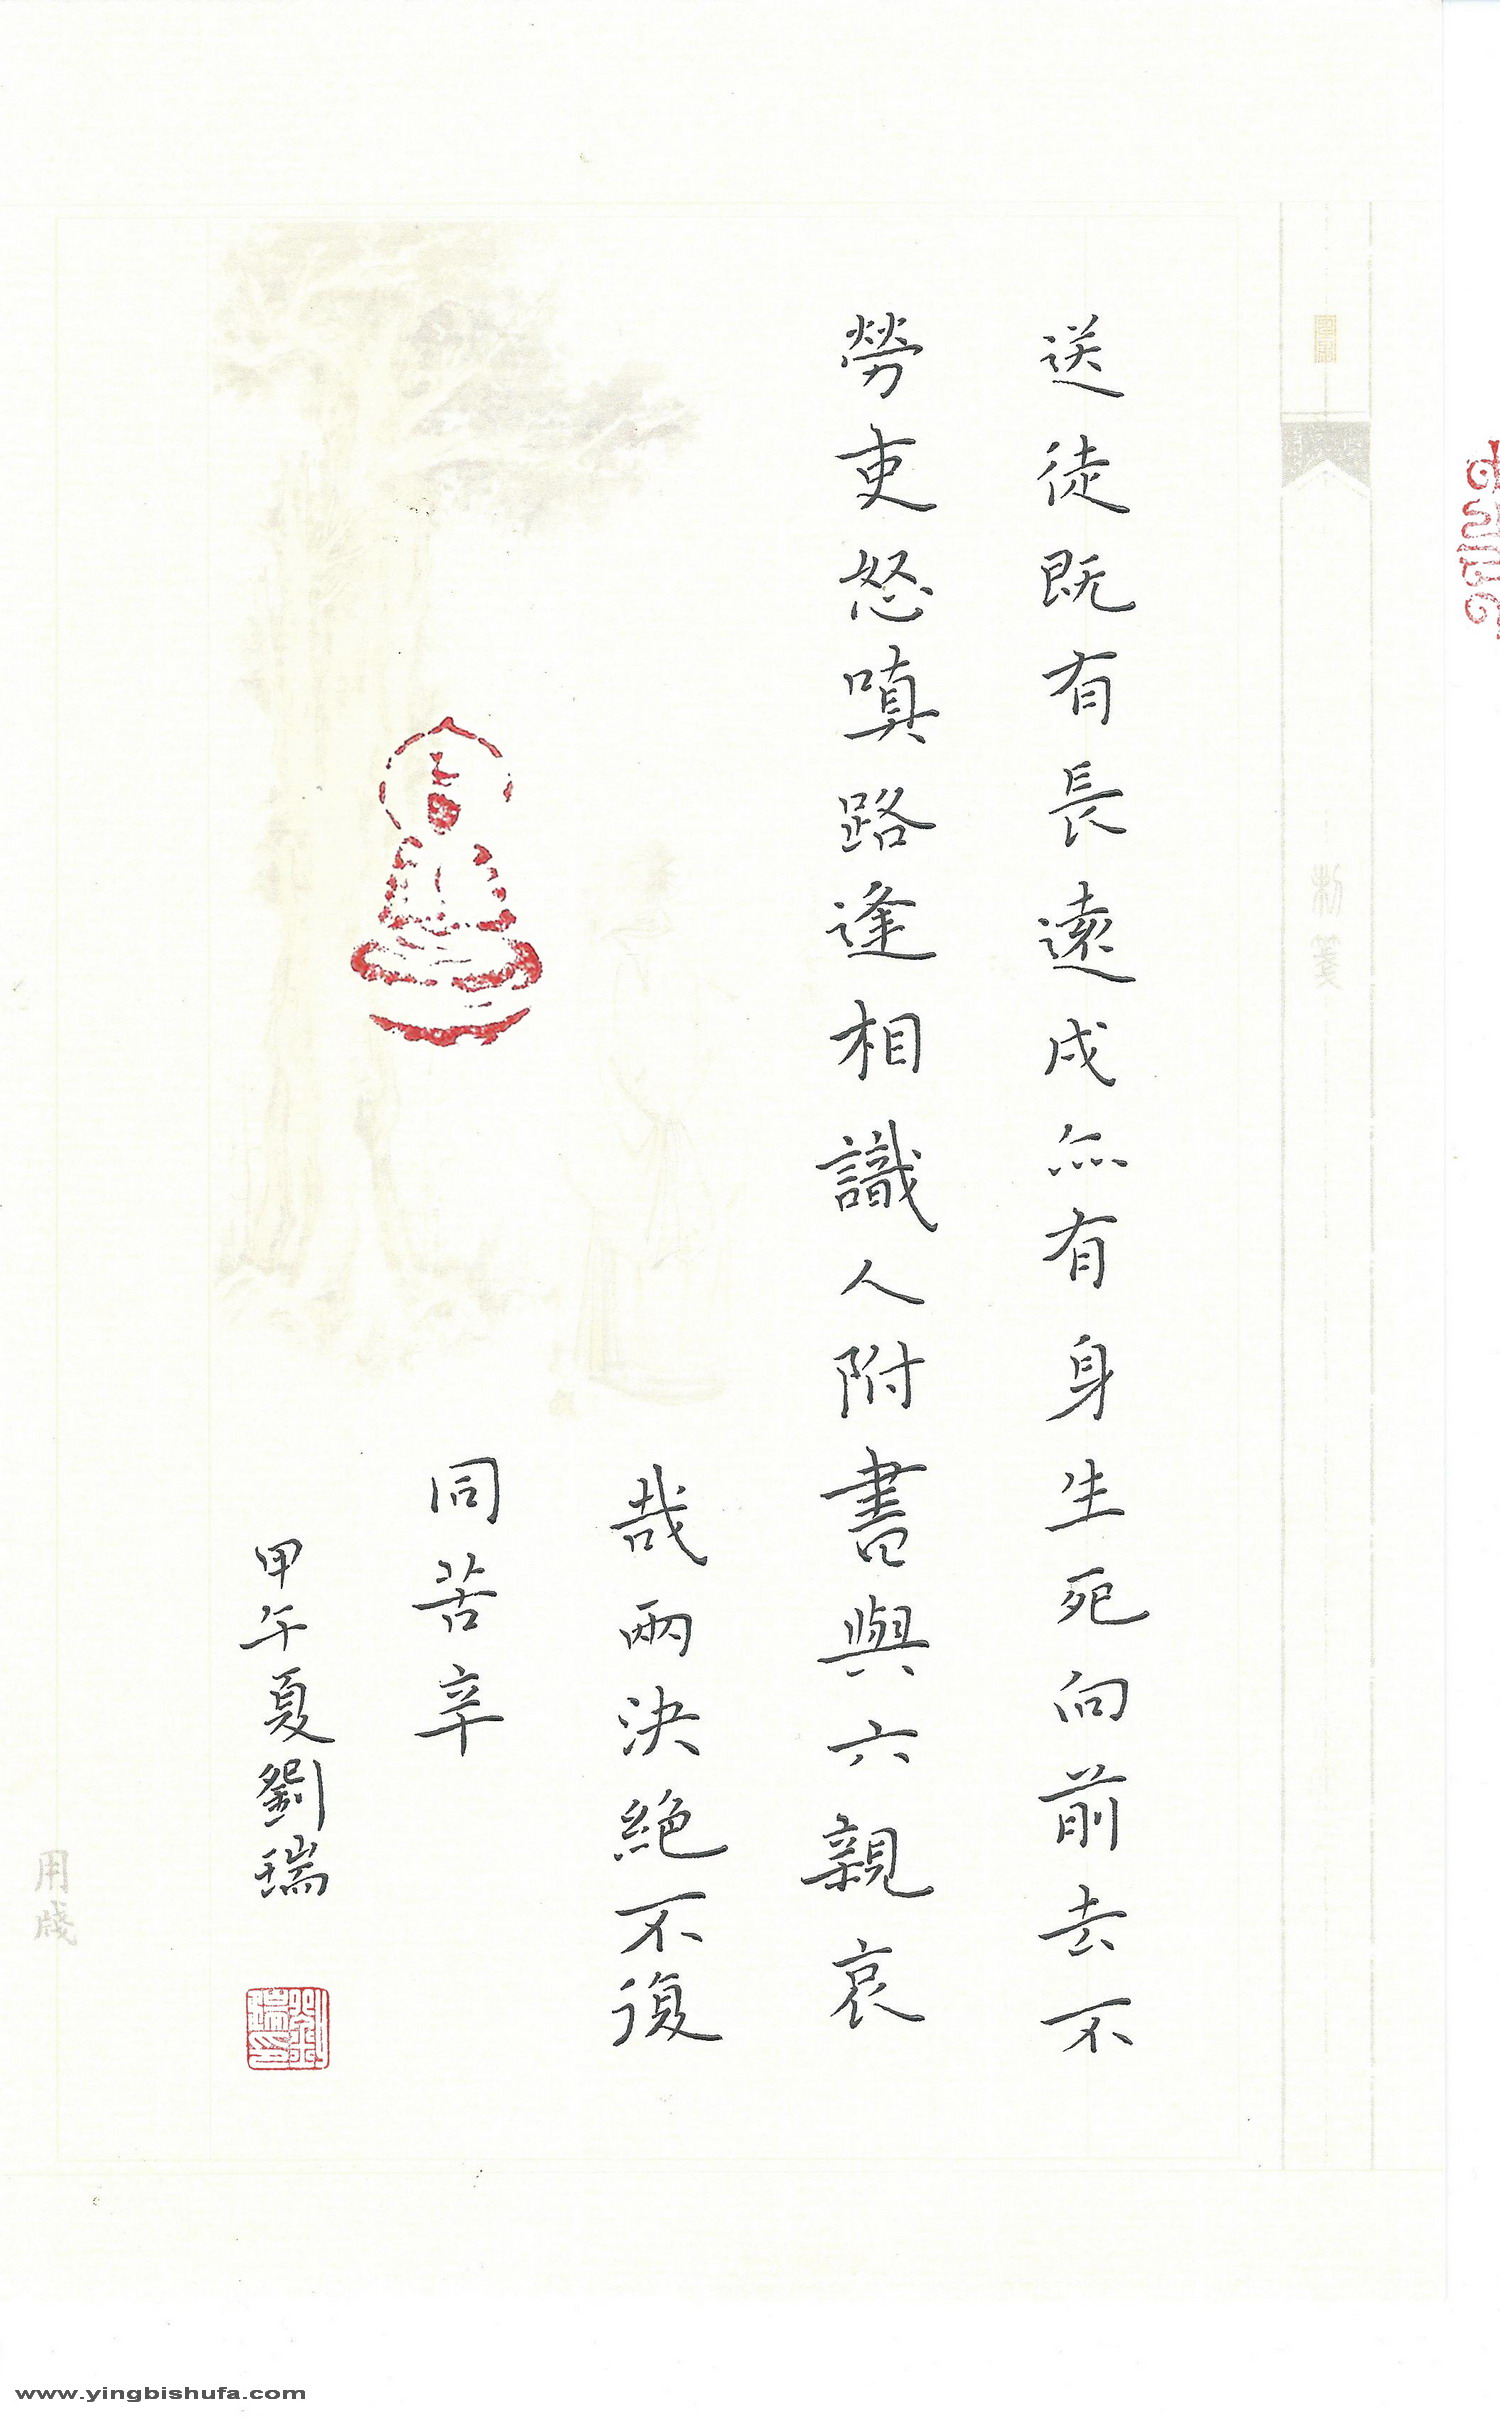 送徒既有長遠戍亦有身生死向前去不
勞吏怒嗔路逢相識人附書與六親哀
哉兩決絕不復
同苦辛
甲午夏劉瑞
劉瑞印
用牋
www.yingbishufa.com